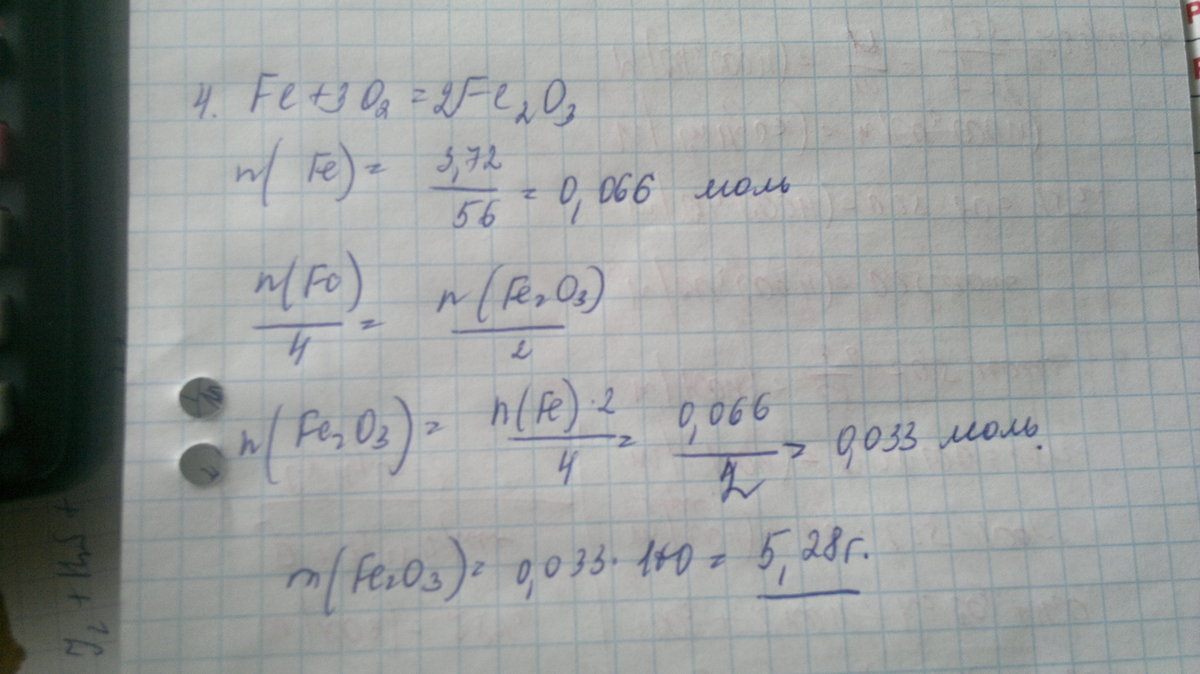 4. Fe + 3O₂ = 2Fe₂O₃
n(Fe) = 3,72/56 = 0,066 моль
n(Fe)/4 = n(Fe₂O₃)/2
n(Fe₂O₃) = n(Fe)·2/4 = 0,066/2 = 0,033 моль.
m(Fe₂O₃) = 0,033·160 = 5,28г.